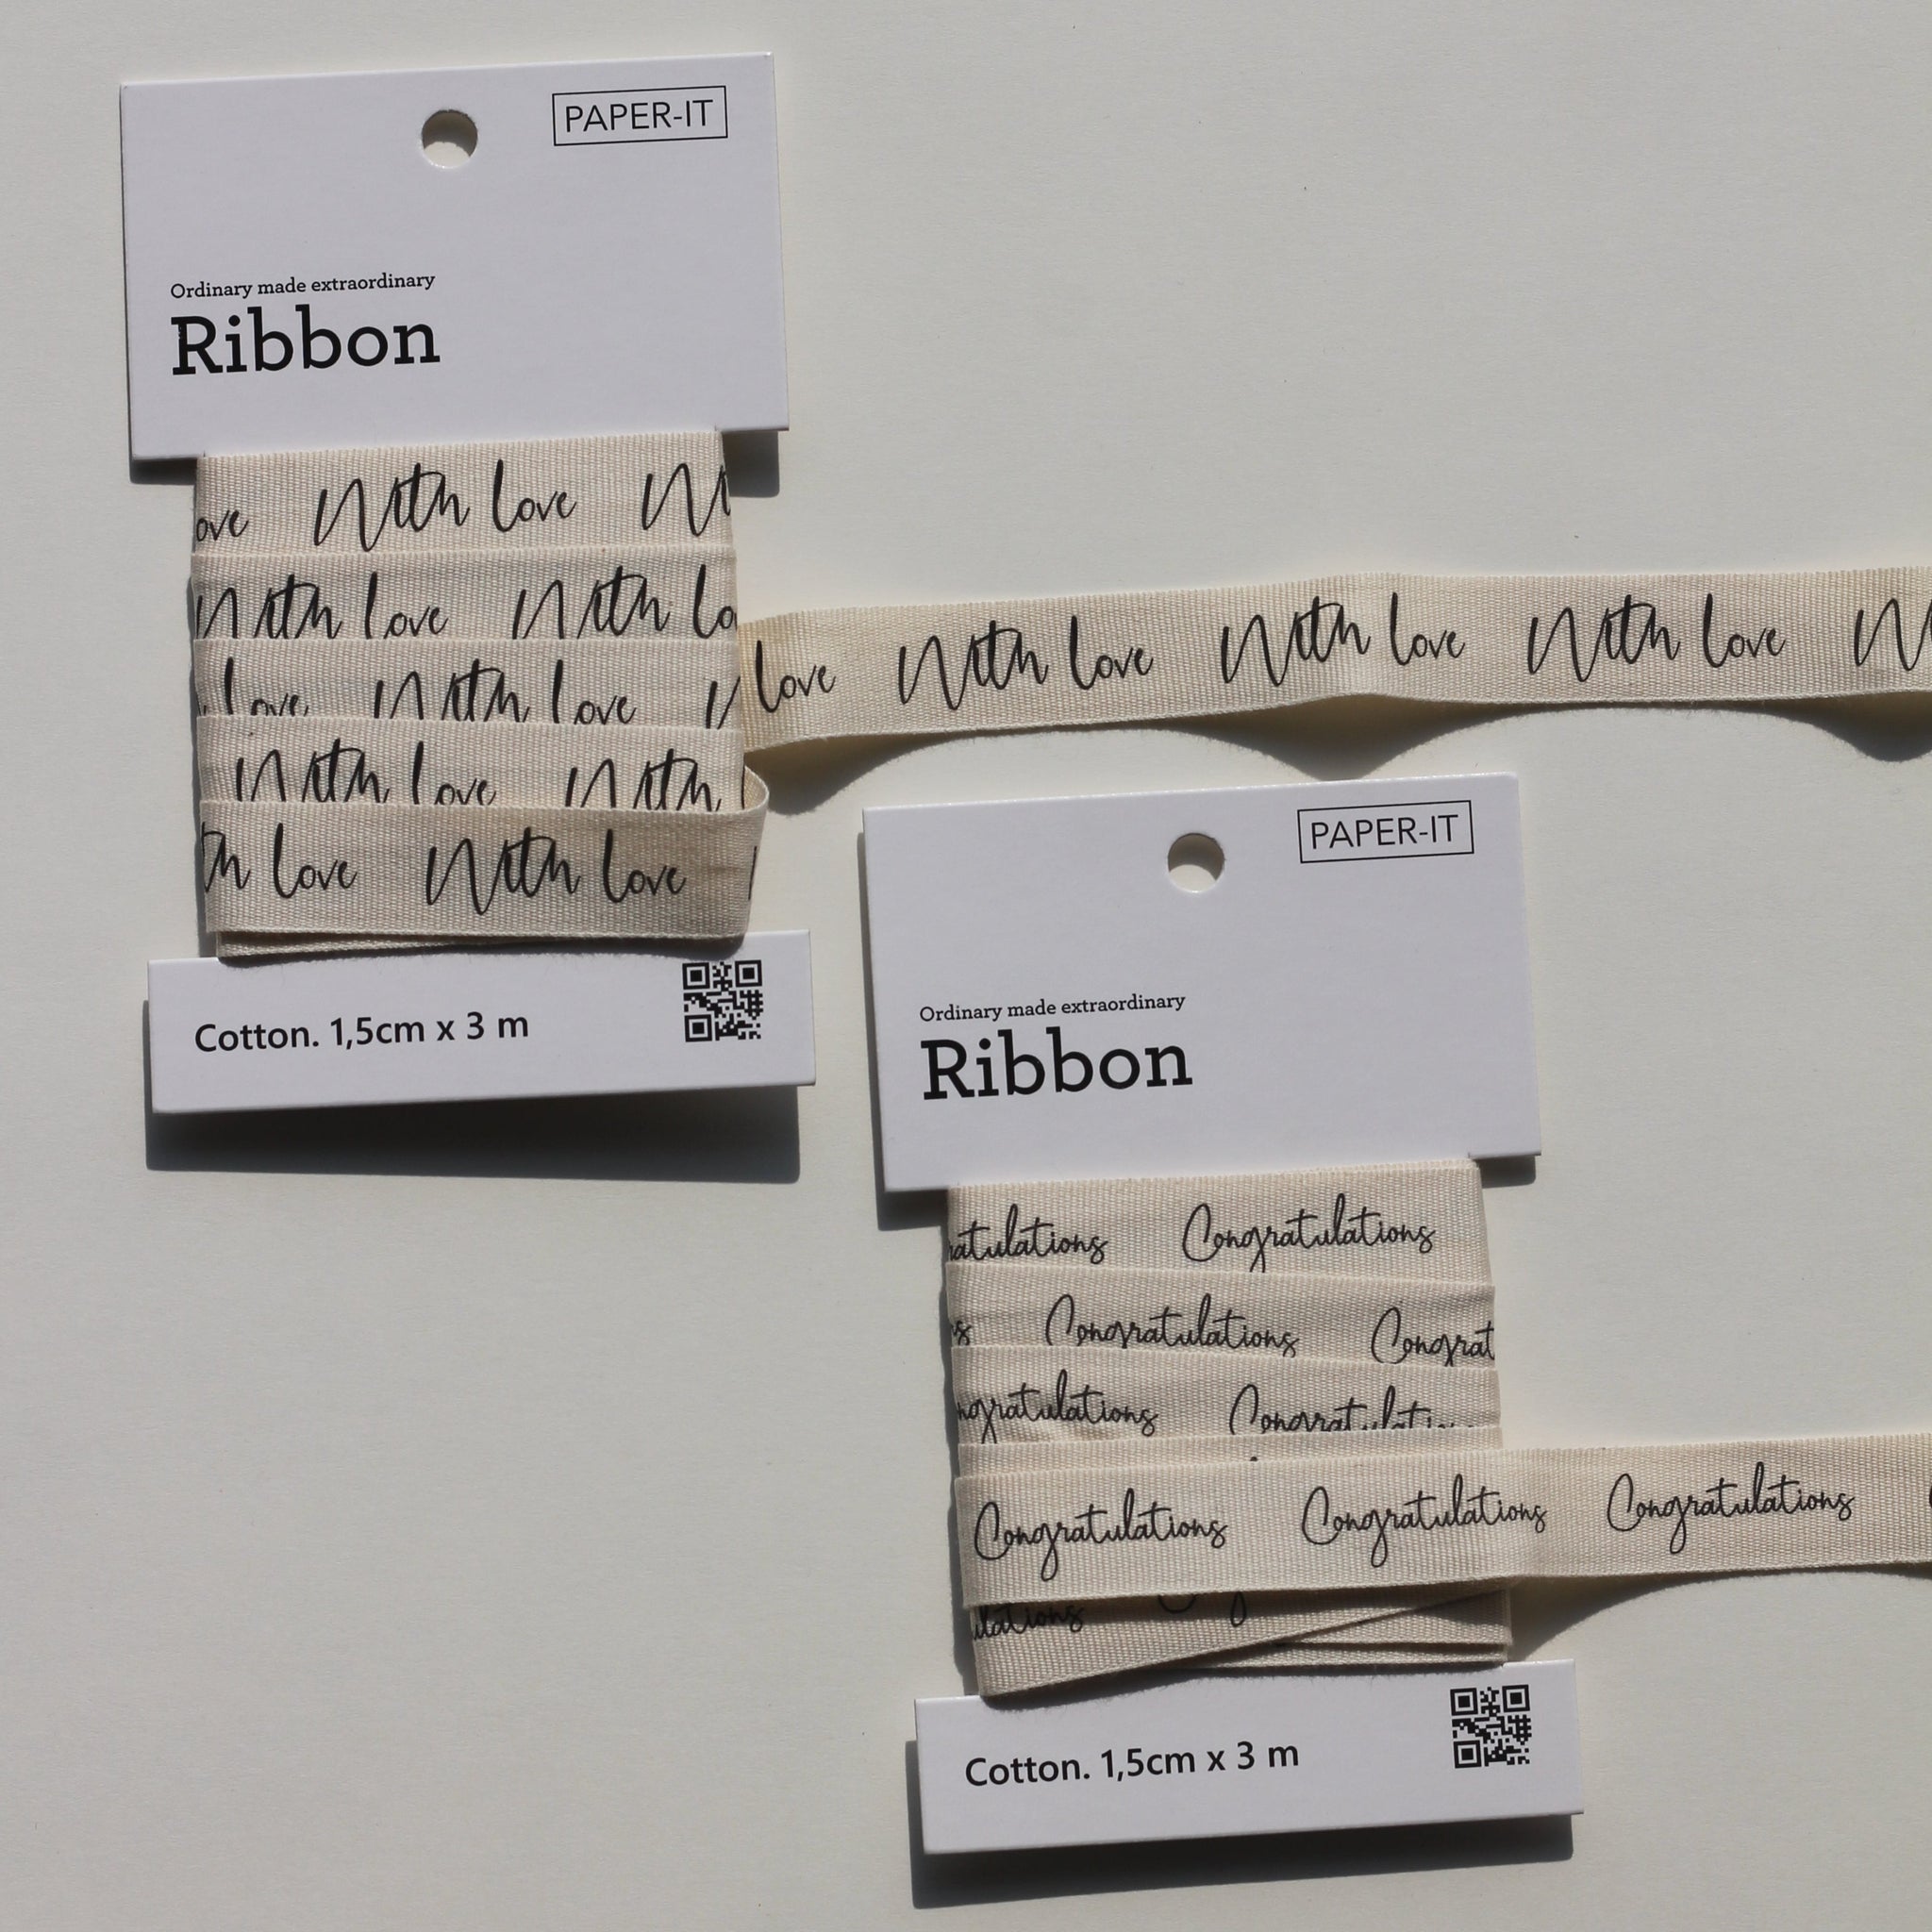 PAPER-IT
Ordinary made extraordinary
Ribbon
ove With love Wi
With love With lo
love With love W
love With love With love With love W
With love With
th love With love
Cotton. 1,5cm x 3 m
PAPER-IT
Ordinary made extraordinary
Ribbon
atulations Congratulations
s Congratulations Congrat
ngratulations Congratulati
Congratulations Congratulations Congratulations
ulations
Cotton. 1,5cm x 3 m